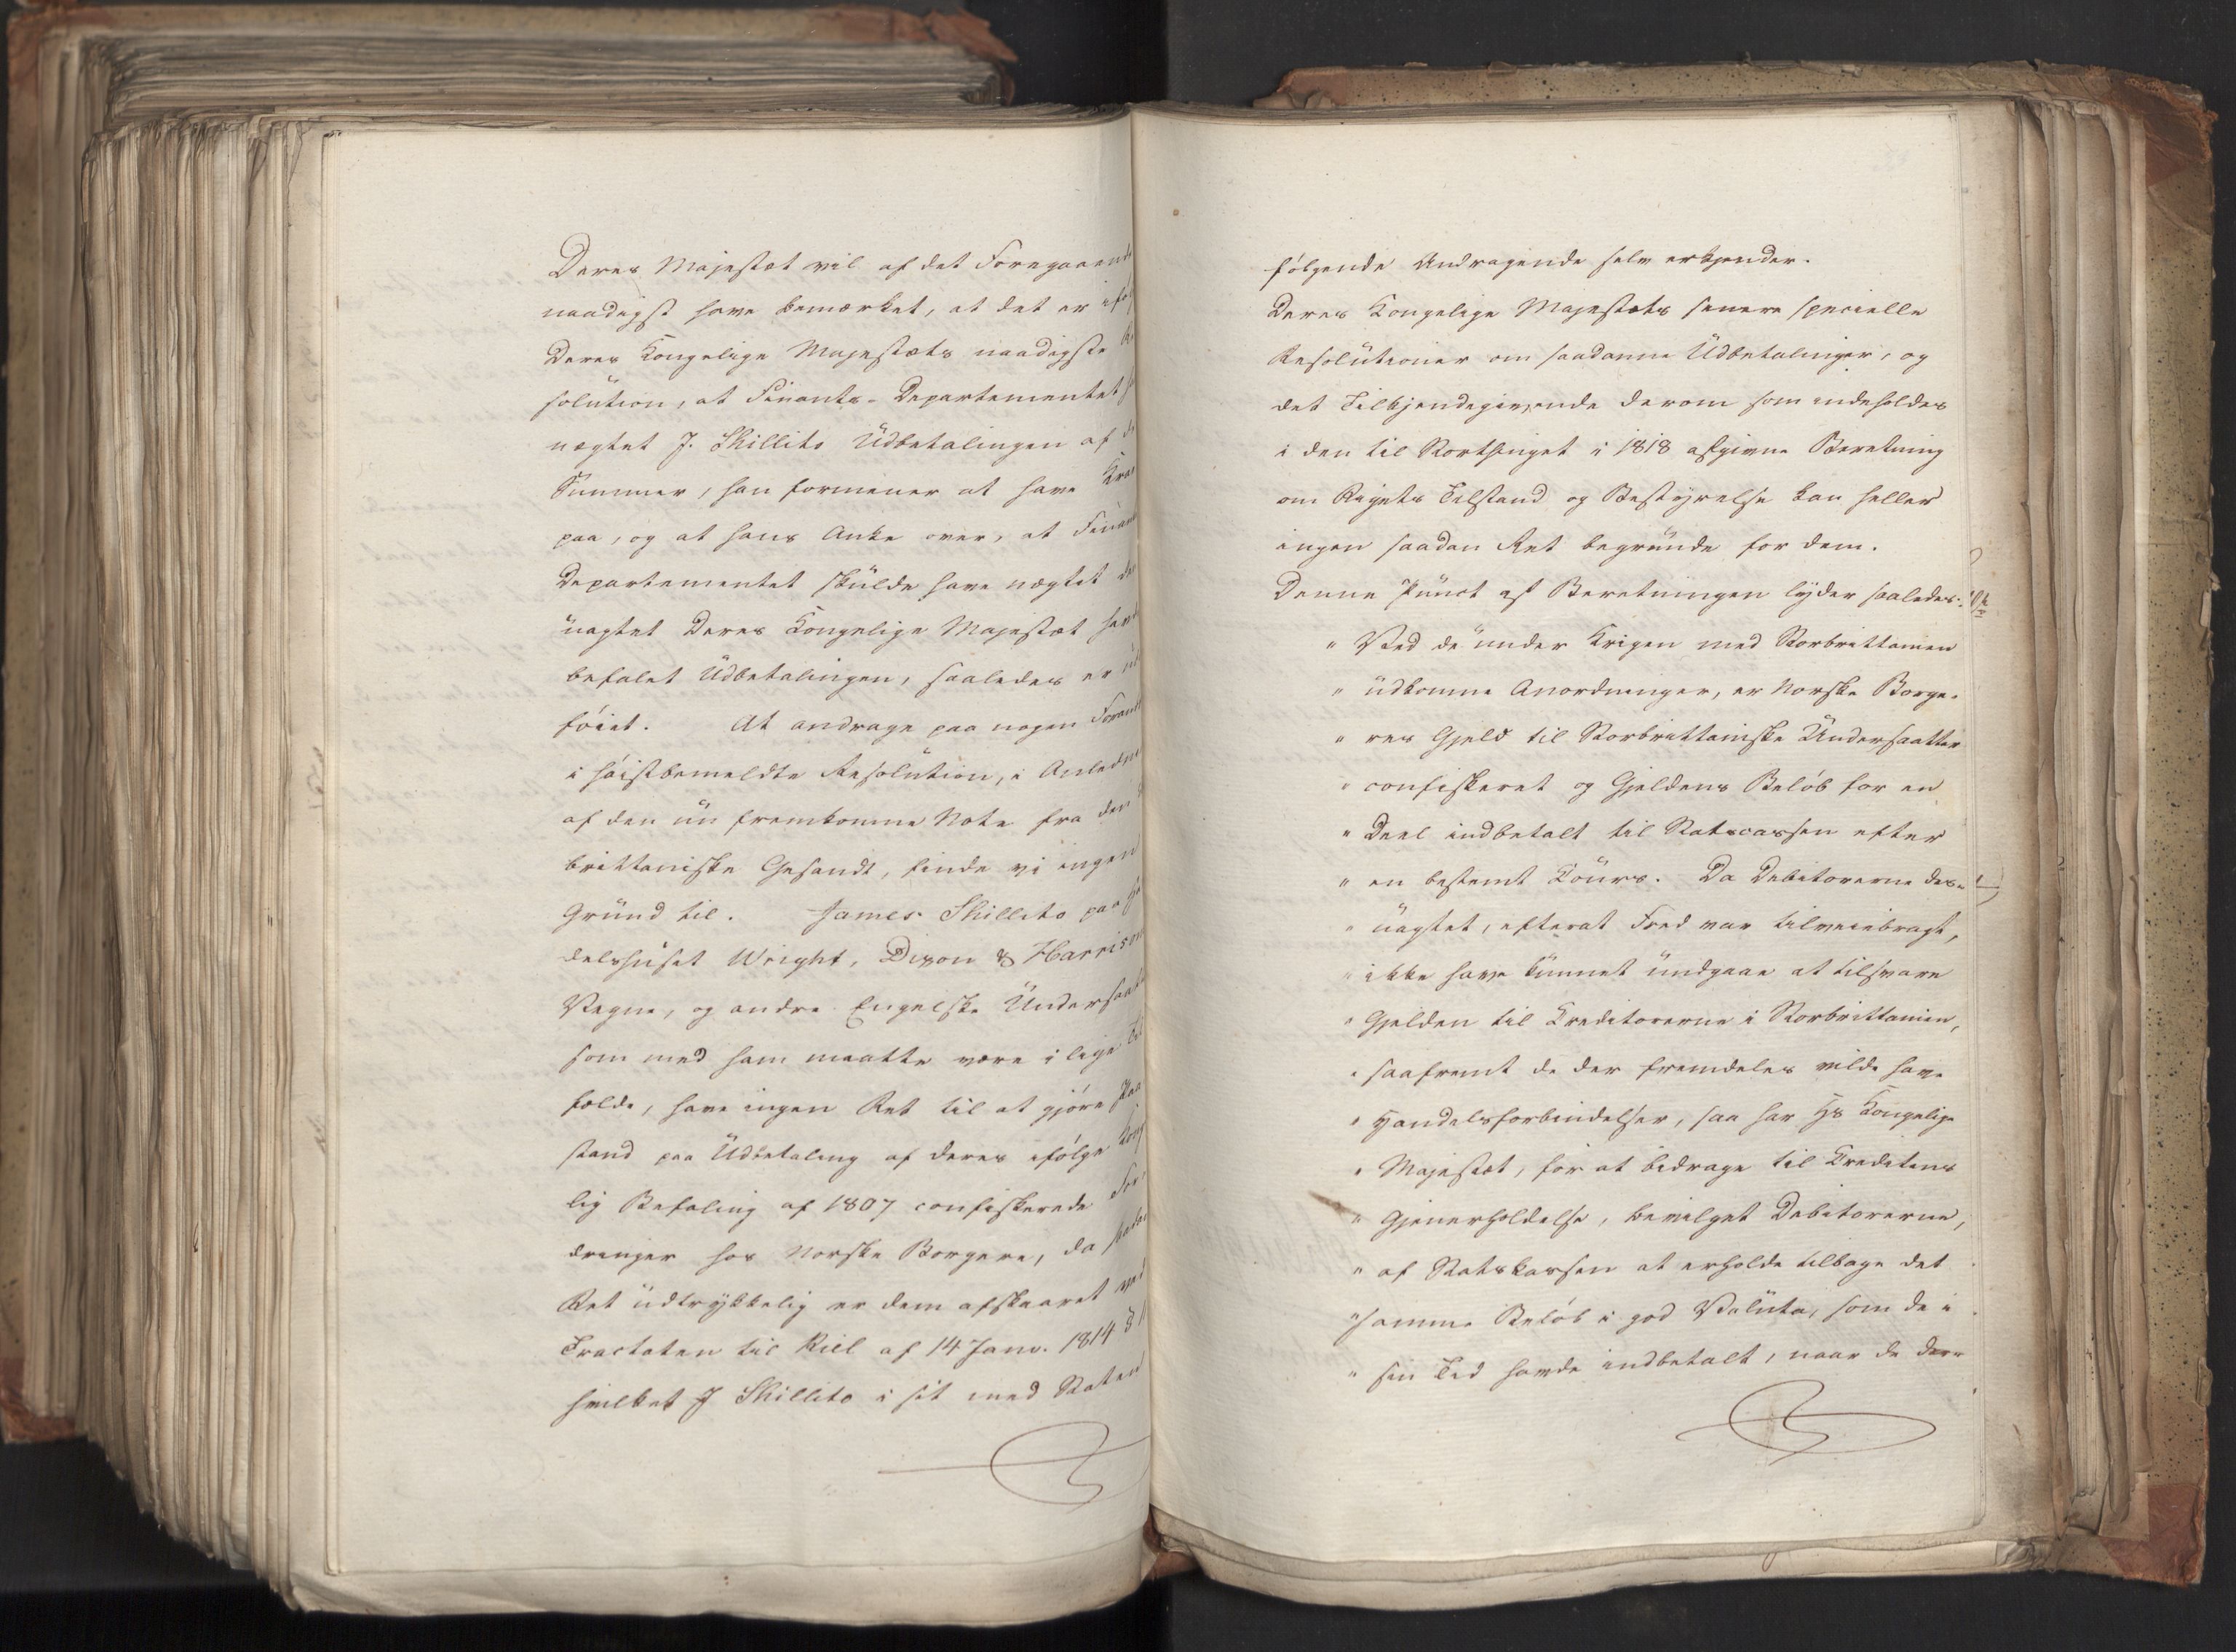 Deres Majestæt vil af det Foregaaende
naadigst have bemærket, at det er ifølg
Deres Kongelige Majestæts naadigste Re
solution, at Finants-Departementet h
nægtet J. Shillito Udbetalingen af de
Summer, han formener at have Krav
paa, og at hans Anke over, at Finants
Departementet skulde have nægtet den
uagtet Deres Kongelige Majestæt havd
befalet Udbetalingen, saaledes er u
føiet. At andrage paa nogen Forand
i høistbemeldte Resolution, i Anledn
af den nu fremkomne Note fra den
brittaniske Gesandt, finde vi ingen
Grund til. James Shillito paa
delshuset Wright, Dixon & Harrisons
Vegne, og andre Engelske Undersaatte
som med ham maatte være i lige Til
fælde, have ingen Ret til at gjøre Paa
stand paa Udbetaling af deres ifølge Konge
lig Befaling af 1807 confiskerede For
dringer hos Norske Borgere, da saadan
Ret udtrykkelig er dem afskaaret ved
Tractaten til Kiel af 14 Janv. 1814 §
hvilket J Shillito i sit med Noten
følgende Andragende selv erkjender.
Deres Kongelige Majestæts senere specielle
Resolutioner om saadanne Udbetalinger, og
det Tilkjendegivende derom som indeholdes
i den til Storthinget i 1818 afgivne Beretning
om Rigets Tilstand og Bestyrelse kan heller
ingen saadan Ret begrunde for dem.
Denne Punct af Beretningen lyder saaledes:
" Ved de under Krigen med Storbrittanien
" udkomne Anordninger, er Norske Borge-
" res Gjeld til Storbrittaniske Undersaatter
" confiskeret og Gjeldens Beløb for en
" Deel indbetalt til Statscassen efter
" en bestemt Cours. Da Debitorerne des-
" uagtet, efterat Fred var tilveiebragt,
" ikke have kunnet undgaae at tilsvare
" Gjelden til Creditorerne i Storbrittanien,
" saafremt de der fremdeles vilde have
" Handelsforbindelser, saa har Hs Kongelige
" Majestæt, for at bidrage til Creditens
" Gjenerholdelse, bevilget Debitorerne,
" af Statskassen at erholde tilbage det
" samme Beløb i god Valuta, som de i
" sin Tid havde indbetalt, naar de der-